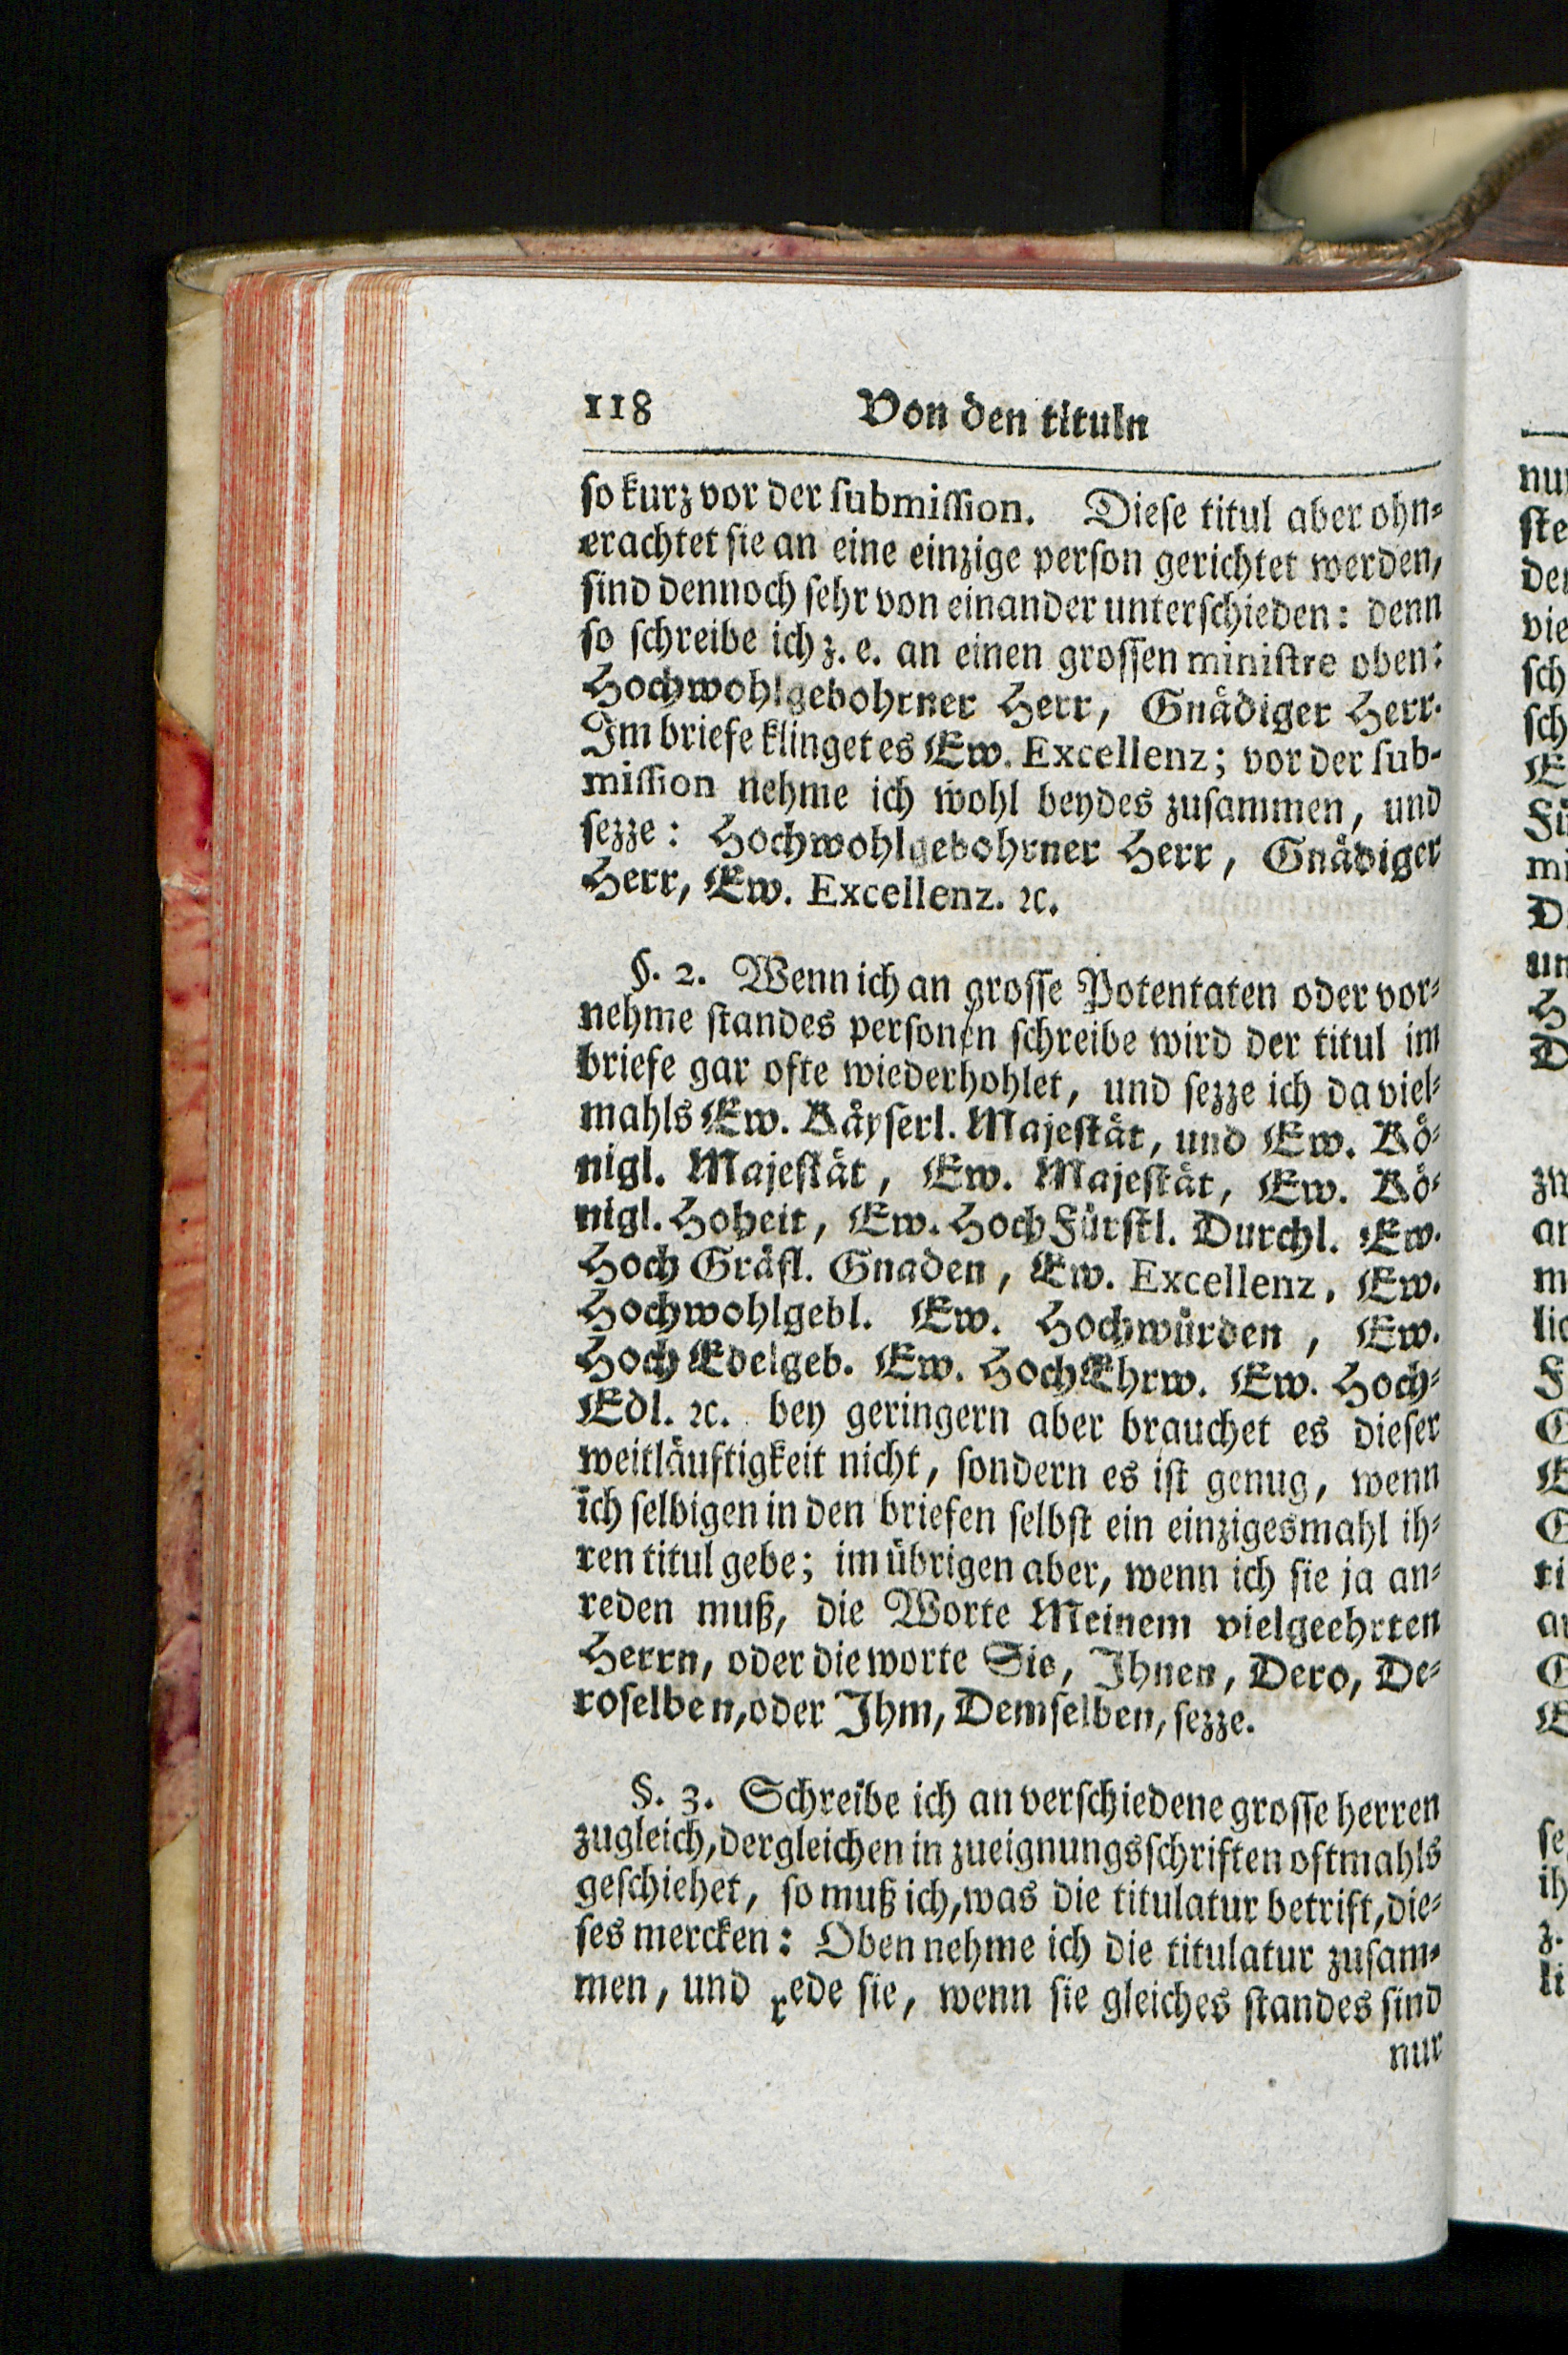 118 Von den tituln
so kurz vor der submission. Diese titul aber ohn-
erachtet sie an eine einzige person gerichtet werden,
sind dennoch sehr von einander unterschieden: denn
so schreibe ich z. e. an einen grossen ministre oben:
Hochwohlgebohrner Herr, Gnädiger Herr.
Im briefe klinget es Ew. Excellenz; vor der sub-
mission nehme ich wohl beydes zusammen, und
sezze: Hochwohlgebohrner Herr, Gnädiger
Herr, Ew. Excellenz. ꝛc.
§. 2. Wenn ich an grosse Potentaten oder vor-
nehme standes personen schreibe wird der titul im
briefe gar ofte wiederhohlet, und sezze ich da viel-
mahls Ew. Käyserl. Majestät, und Ew. Kö-
nigl. Majestät, Ew. Majestät, Ew. Kö-
nigl. Hoheit, Ew. Hoch Fürstl. Durchl. Ew.
Hoch Gräfl. Gnaden, Ew. Excellenz, Ew.
Hochwohlgebl. Ew. Hochwürden, Ew.
Hoch Edelgeb. Ew. HochEhrw. Ew. Hoch-
Edl. ꝛc. bey geringern aber brauchet es dieser
weitläuftigkeit nicht, sondern es ist genug, wenn
ich selbigen in den briefen selbst ein einzigesmahl ih-
ren titul gebe; im übrigen aber, wenn ich sie ja an-
reden muß, die Worte Meinem vielgeehrten
Herrn, oder die worte Sie, Ihnen, Dero, De-
roselben, oder Ihm, Demselben, sezze.
§. 3. Schreibe ich an verschiedene grosse herren
zugleich, dergleichen in zueignungsschriften oftmahls
geschiehet, so muß ich, was die titulatur betrift, die-
ses mercken: Oben nehme ich die titulatur zusam-
men, und rede sie, wenn sie gleiches standes sind
nur